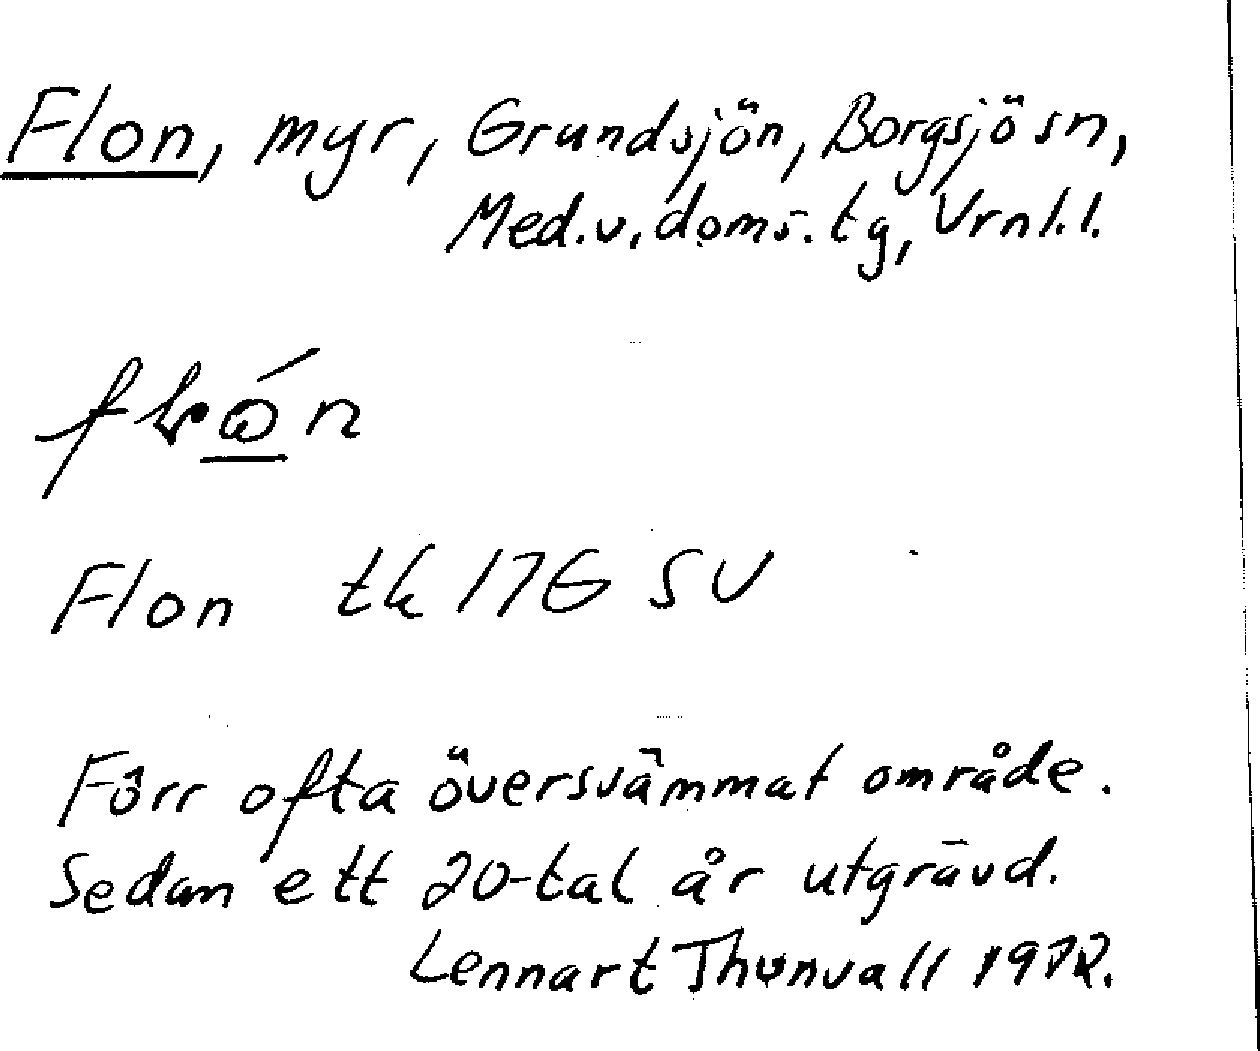 Flon, myr, Grundsjön, Borgsjösn,
Med.v.doms.tg, Vrnl.l.
Flon tk 17G SV
Förr ofta översvämmat område.
Sedan ett 20-tal år utgrävd.
Lennart Thunvall 1972.